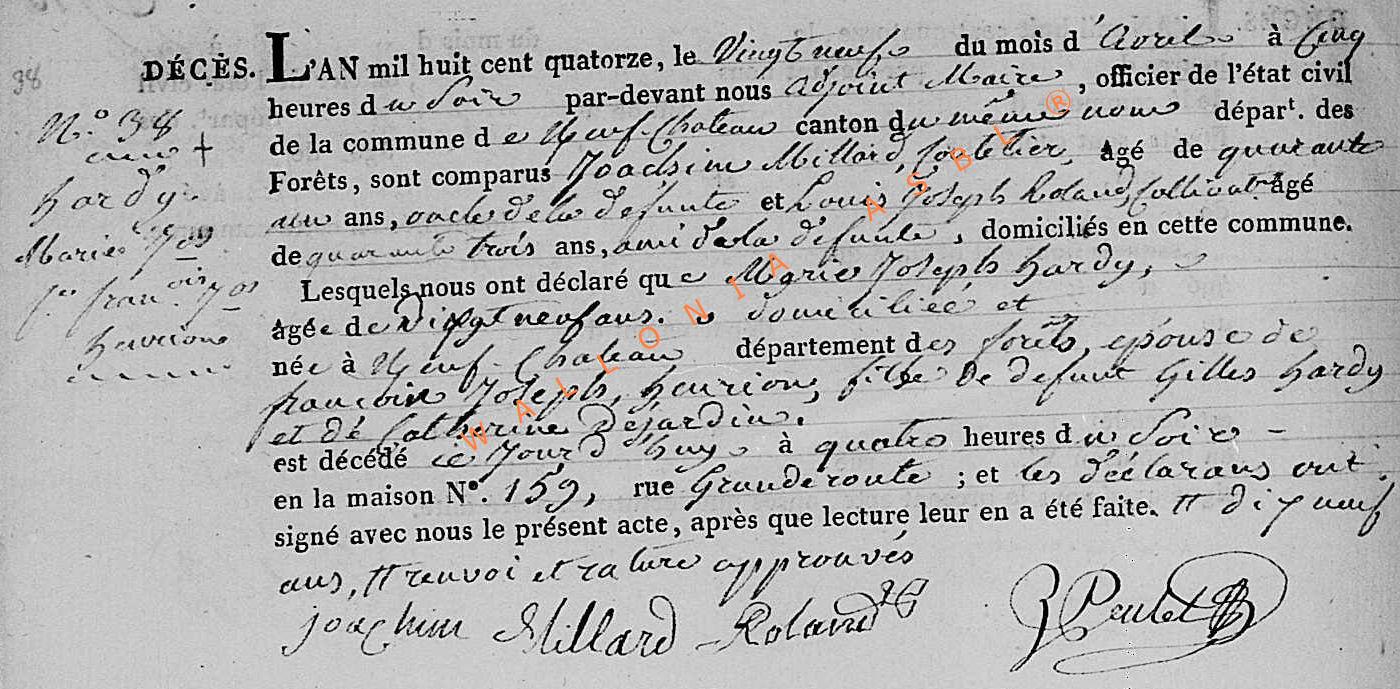 38
DÉCÈS. L'AN mil huit cent quatorze, le Vingt neuf du mois d'Avril à Cinq
heures du Soir par-devant nous adjoint Maire, officier de l'état civil
de la commune de Neuf-Chateau canton du même nom départ. des
Forêts, sont comparus Joachim Millard, agé de quarante
ans, oncle de la defunte et Louis Joseph Roland, Cultivat. âgé
de quarante trois ans, ami de la défunte, domiciliés en cette commune.
Lesquels nous ont déclaré que Marie Joseph hardy,
âgée de neuf ans. domiciliée et
née à Neuf-Chateau département des forêts, epouse de
françois Joseph henrion, fille de defunt Gilles hardy
et de Catherine Dejardin.
est décédé ce Jour d'huy à quatre heures du Soir -
en la maison No. 159, rue Grande route ; et les déclarans ont
signé avec nous le présent acte, après que lecture leur en a été faite. # dix neuf
ans, # renvoi et rature approuvés
Joachim Millard Roland
N.o 38
hardy.
Marie Jos
fe. franc.ois Jos
henrion
WALLONIA ASBL ®